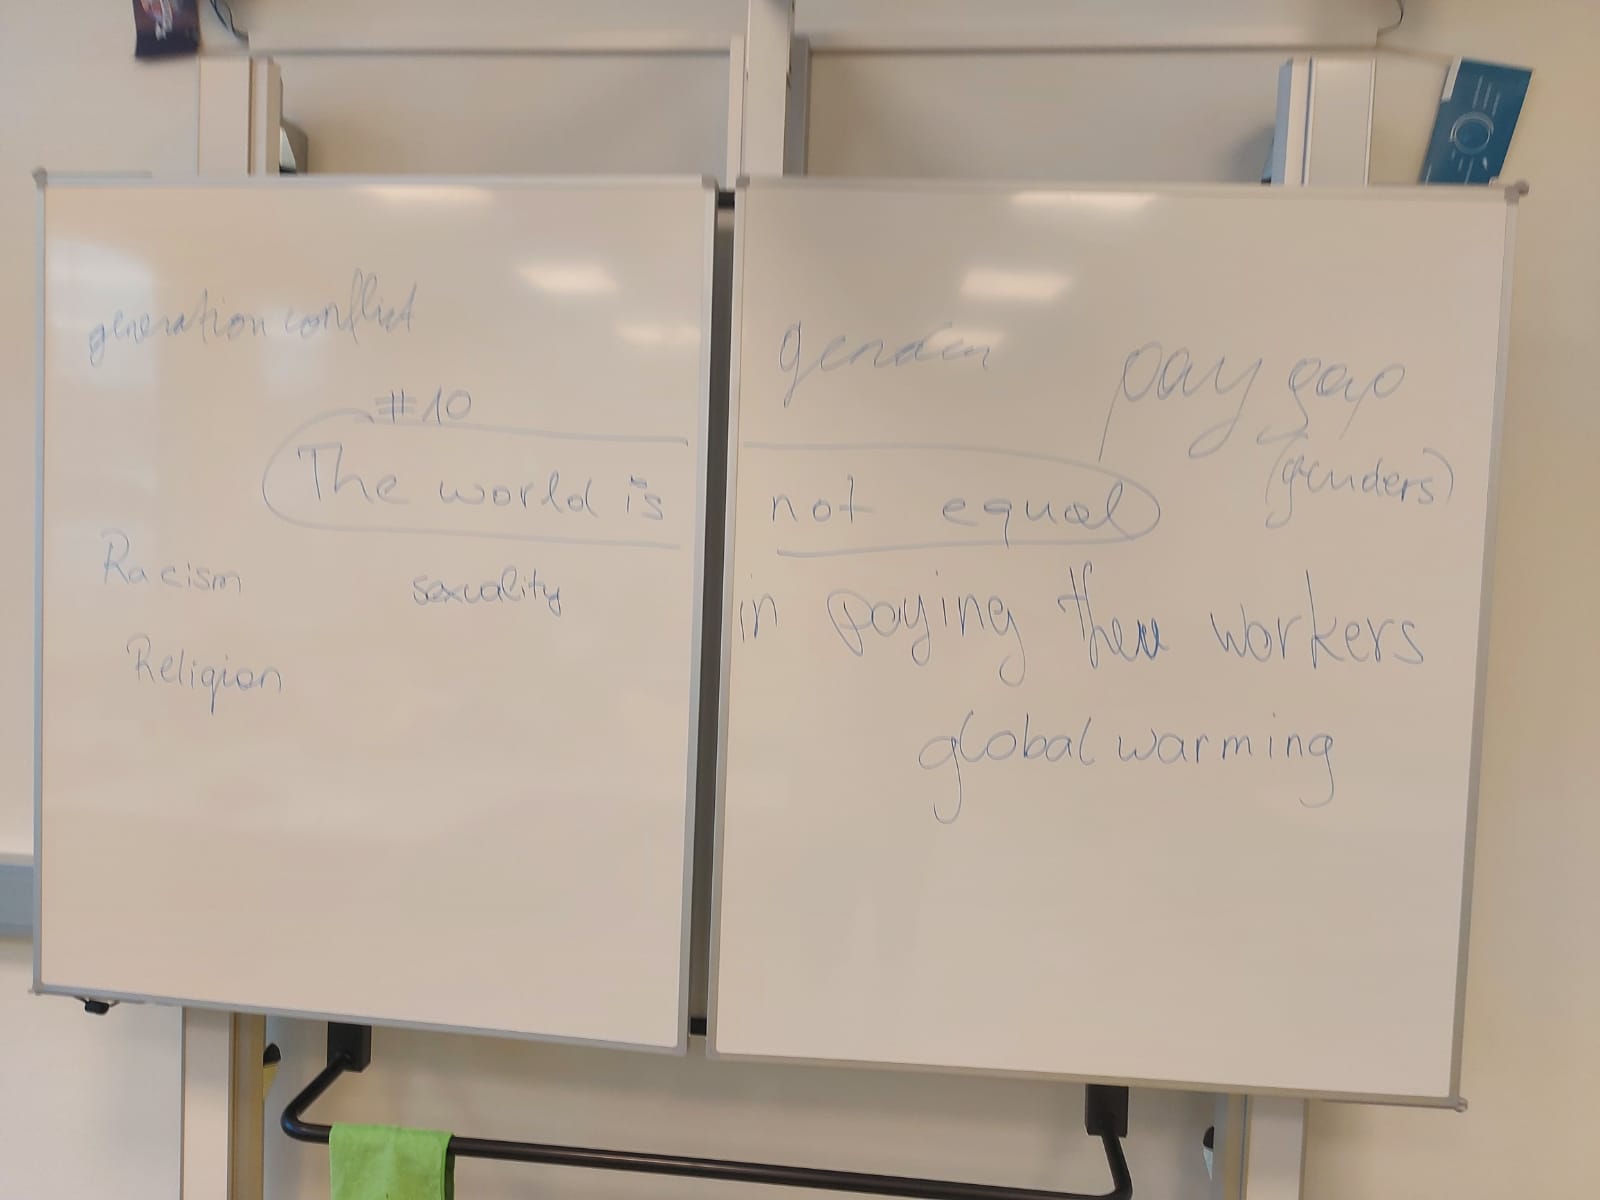 generation conflict
gender
pay gap
(genders)
#10
The world is not equal
Racism
sexuality
in paying their workers
Religion
global warming